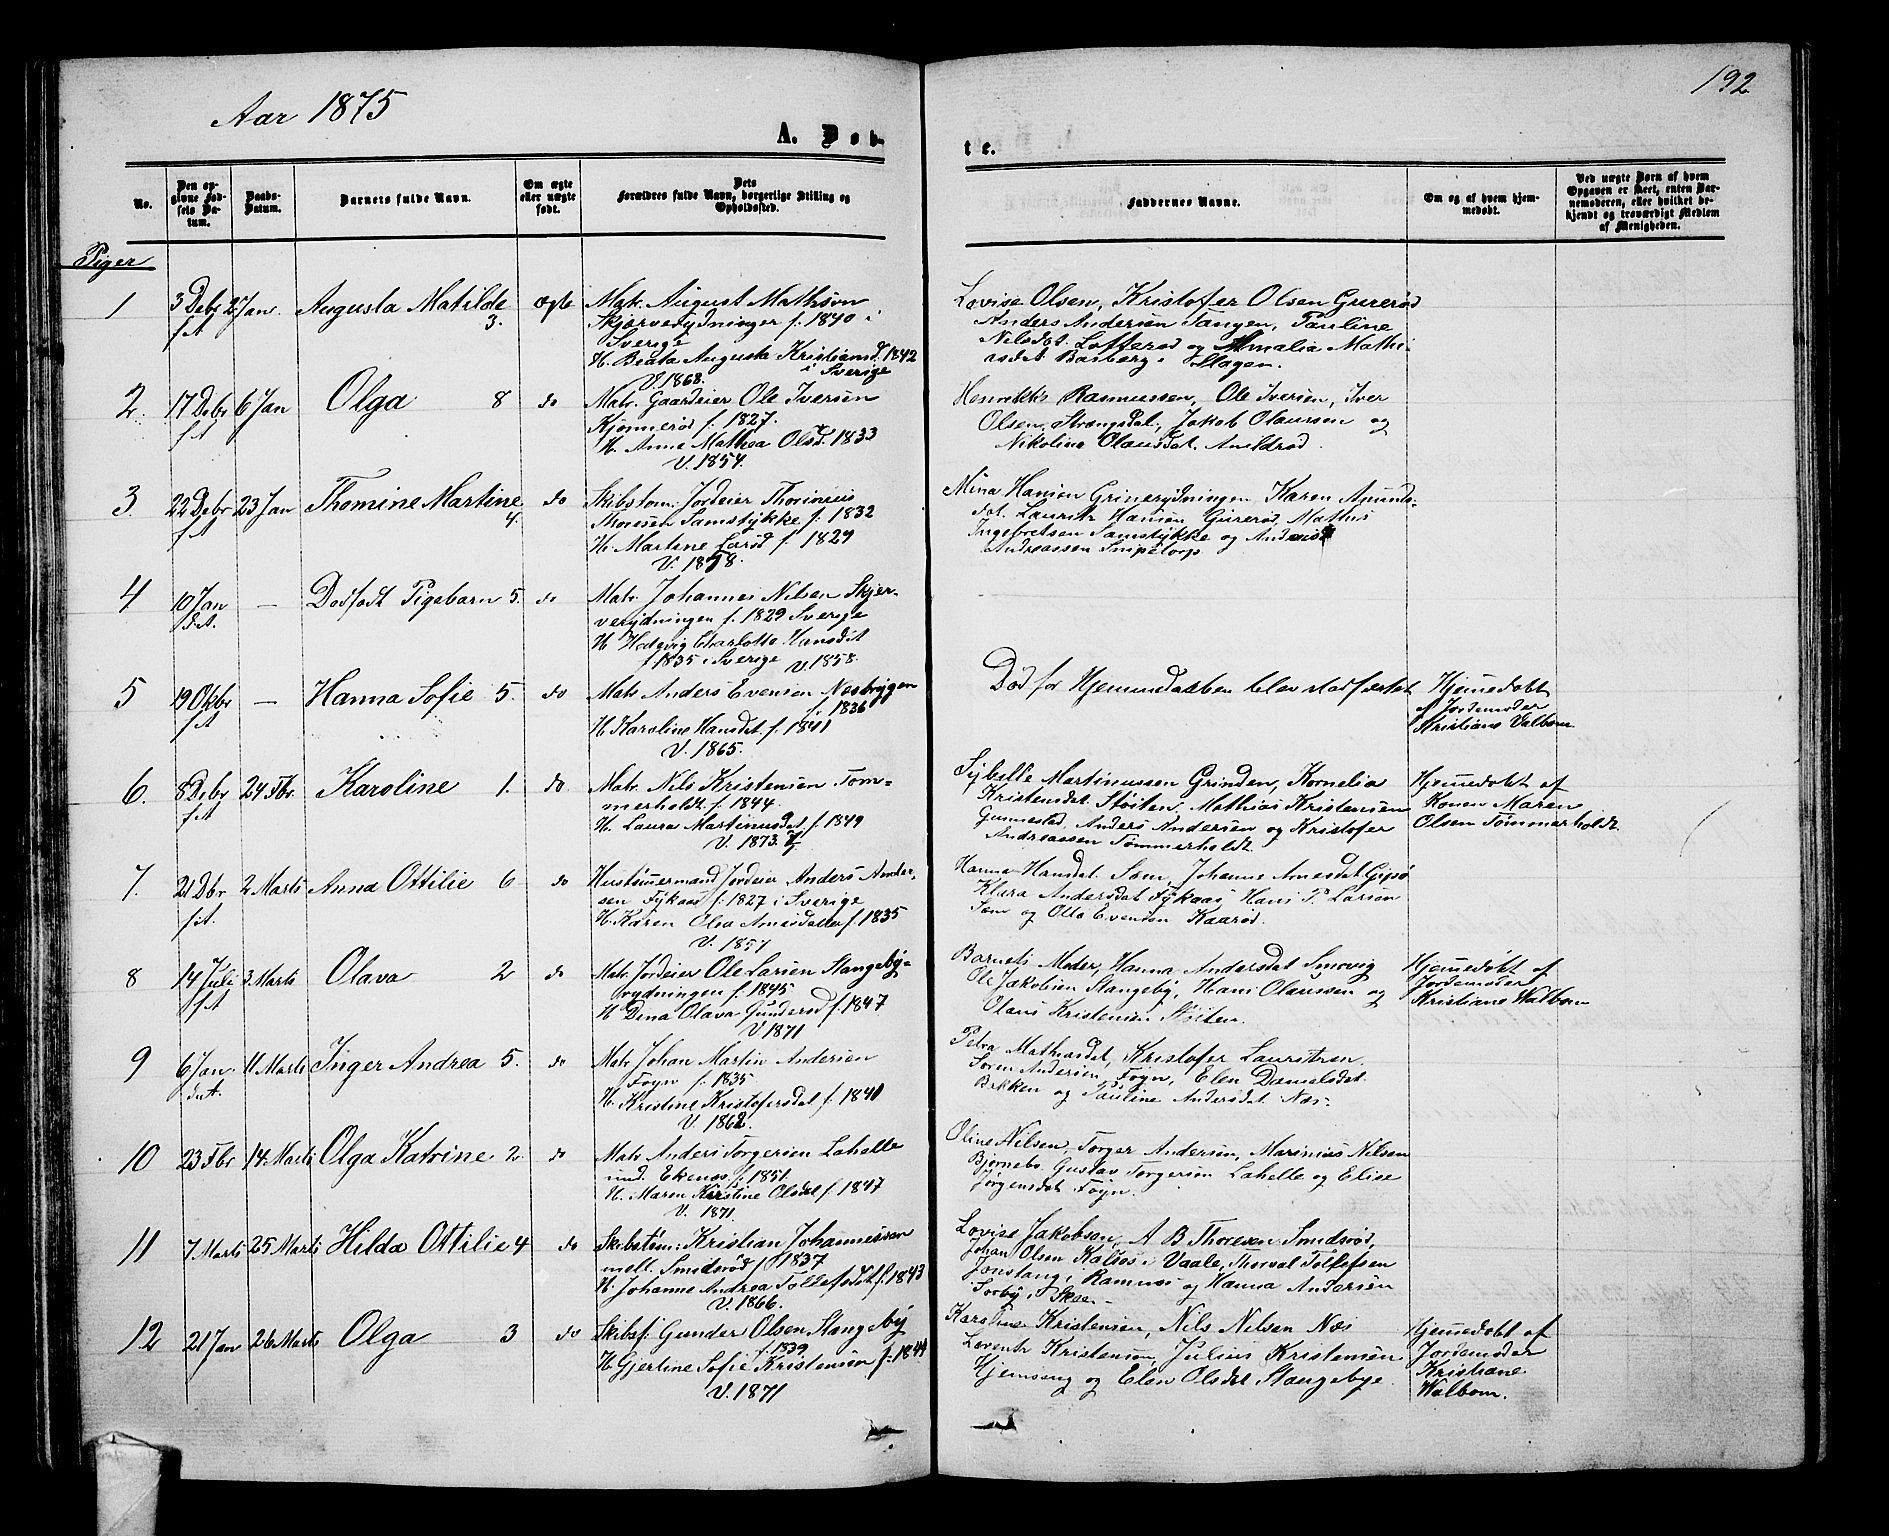 192
Aar 1875
A. Døb-
te.
No.
Den opgivne Fødsels Datum.
Daabs-Datum.
Barnets fulde Navn.
Om ægte eller uægte født.
Dets Forældres fulde Navn, borgerlige Stilling og Opholdssted.
Faddernes Navne.
Om og af hvem hjemmedøbt.
Ved uægte Børn af hvem Opgaven er skeet, enten Barnemoderen, eller hvilket bekjendt og troværdigt Medlem af Menigheden.
Piger
1 3 Debr 2 Jan. Augusta Matilde 3. ægte Mat. August Mathson
Skjærverydninger f. 1840 i
Sverige
H. Beata Augusta Kristiansd. 1842
i Sverige
V. 1868.
Lovise Olsen, Kristofer Olsen Gurerød
Anders Andersen Tangen, Pauline
Nilsdat. Lofterød og Amalia Mathi-
asdat. Basberg i Slagen.
2. 17 Debr 6 Jan Olga 8 do Matr. Gaardeier Ole Iversen
Kjønnerød f. 1827.
H. Anne Mathea Olsd. 1833
V. 1854.
Rasmussen, Ole Iversen, Iver
Olsen Strængsdal, Jakob Olaussen og
Nikoline Olausdat.
3. 22 Debr 23 Jan Thomine Martine 4. do Skibstøm: Jordeier
Thoresen Samstykke f. 1832
H. Martine Lerød f. 1829
V. 1858.
Mina Hansen Grinerydningen Karen Amunds-
dat. Lauritz Hansen Gurerød, Mathis
Ingebretsen Samstykke og
Andreassen Snipetorp
4 10 Jan — Dødfødt Pigebarn 5. do Matr. Johannes Nilsen Skjær-
verydningen f. 1829 Sverige
H. Hedevig Charlotte Hansdat
f 1835 i Sverige V. 1858.
5 19 Okbr — Hanna Sofie 5. do Matr Anders Evensen Nesbryggen
f. 1836
H. Karoline Hansdat f. 1841
V. 1865.
Død før Hjemmedaaben blev stadfæstet
Hjemmedøbt
af Jordemoder
Kristiane Valbom
6. 8 Debr 24 Fbr. Karoline 1. do Matr. Nils Kristensen Tøm-
merholdt f. 1844.
H. Laura Martinusdat f. 1849
V. 1873
Sybille Martinussen Grinden, Kornelia
Kristensdat Støiten, Mathias Kristensen
Gunnestad, Anders Andersen og Kristofer
Andreassen Tømmerholdt.
Hjemmedøbt af
Konen Maren
Olsen Tømmerholdt.
7. 21 Dbr 2 Marts Anna Ottilie 6 do Hustømmermand Jordeier Anders Ander-
sen Fykaas f. 1827 i Sverige
H. Karen Olea Arnesdatter f. 1835
V. 1857
Hanna Hansdat. Sem, Johanne Arnesdat Gipø
Klara Andersdat Fykaas, Hans P. Larsen
Sem og Otto Evensen Kaarød.
8 14 Juli 3 Marts Olava 2 do Matr. Jordeier Ole Larsen Stangeby-
rydningen f. 1845
H. Dina Olava Gunderød f. 1847
V 1871
Barnets Moder, Hanna Andersdat Smovig
Ole Jakobsen Stangeby, Hans Olaussen og
Olaus Kristensen Støiten.
Hjemmedøbt af
Jordemoder
Kristiane Walbom
9 6 Jan. 11 Marts Inger Andrea 5. do Matr. Johan Martin Andersen
Føyn f. 1835
H. Kristine Kristofersdat f. 1841
V. 1862.
Petra Mathiasdat, Kristofer Lauritzen
Søren Andersen, Føyn, Elen Danielsdat
Bakken og Pauline Andersdat Næs.
10 23 Fbr 14 Marts Olga Katrine 2 do Matr Anders Torgersen Lahelle
und. Ekenæs f. 1851.
H. Maren Kirstine Olsdat f. 1847
V. 1871.
Oline Nilsen, Torger Andersen, Marinius Nilsen
Bjørnebo Gustav Torgersen Lahelle og Elise
Jørgensdat Føyn.
11 7 Marts 25 Marts Hilda Ottilie 4 do Skibstøm: Kristian Johannessen
mell. Smidsrød f. 1837
H. Johanne Andrea Tollefsdat f. 1843
V. 1866.
Lovise Jakobsen, A B Thoresen Smidsrød,
Johan Olsen i Vaale, Thorval Tollefsen
Jonstang i Ramnes og Hanna Andersen
Sørby i
12 21 Jan 26 Marts Olga 3 do Skibsf. Gunder Olsen Stangeby
f. 1839
H. Gjertine Sofie Kristensen f. 1844
V. 1871
Karoline Kristensen, Nils Nilsen Næs
Lorentz Kristensen, Julius Kristensen
Hjemseng og Elen Olsdat Stangebye.
Hjemmedøbt af
Jordemoder
Kristiane
Walbom.